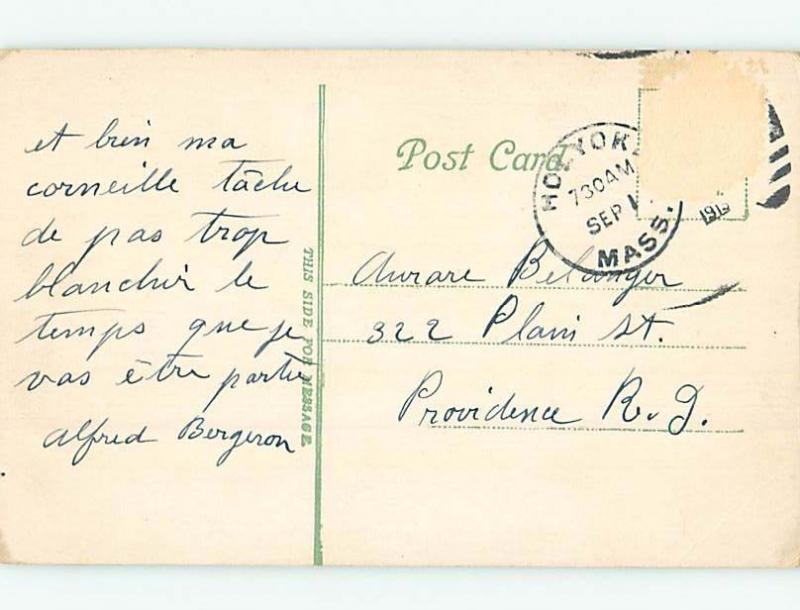 et bien ma
corneille tâche
de pas trop
blanchir le
temps que je
vas être partie
Alfred Bergeron
THIS SIDE FOR MESSAGE.
Post Card.
HOLYOKE
730AM
SEP 1
MASS.
Aurore Belanger
322 Plain St.
Providence R.I.